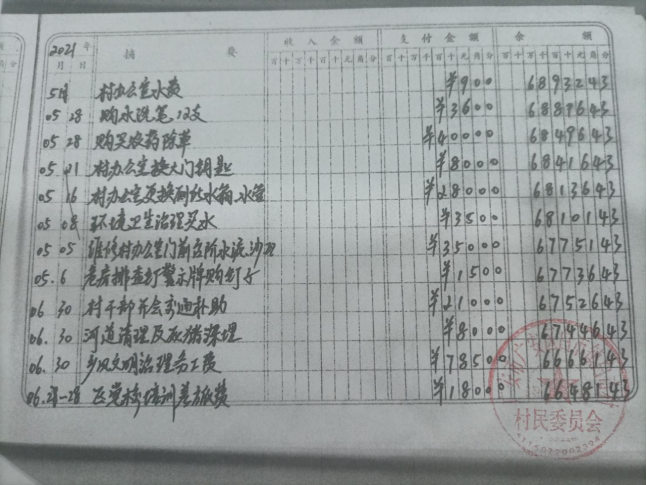 2021年 摘 要 收入金额 支付金额 余 额
月 日 百十万千百十元角分 百十万千百十元角分 百十万千百十元角分
5月 村办公室水费 ¥900 6893243
05 28 购水洗笔12支 ¥3600 6889643
05 28 购买农药除草 ¥40000 6849643
05 21 村办公室换大门钥匙 ¥8000 6841643
05 16 村办公室更换厕所水箱、水管 ¥28000 6813643
05 08 环境卫生治理买水 ¥3500 6810143
05 05 维修村办公室门前台阶水泥、沙 ¥35000 6775143
05.6 危房排查打警示牌购钉子 ¥1500 6773643
06 30 村干部开会交通补助 ¥21000 6752643
06.30 河道清理及死猪深埋 ¥8000 6744643
06.30 乡风文明治理务工费 ¥78500 6666143
06.21-28 区党校培训差旅费 ¥18000 6648143
村民委员会